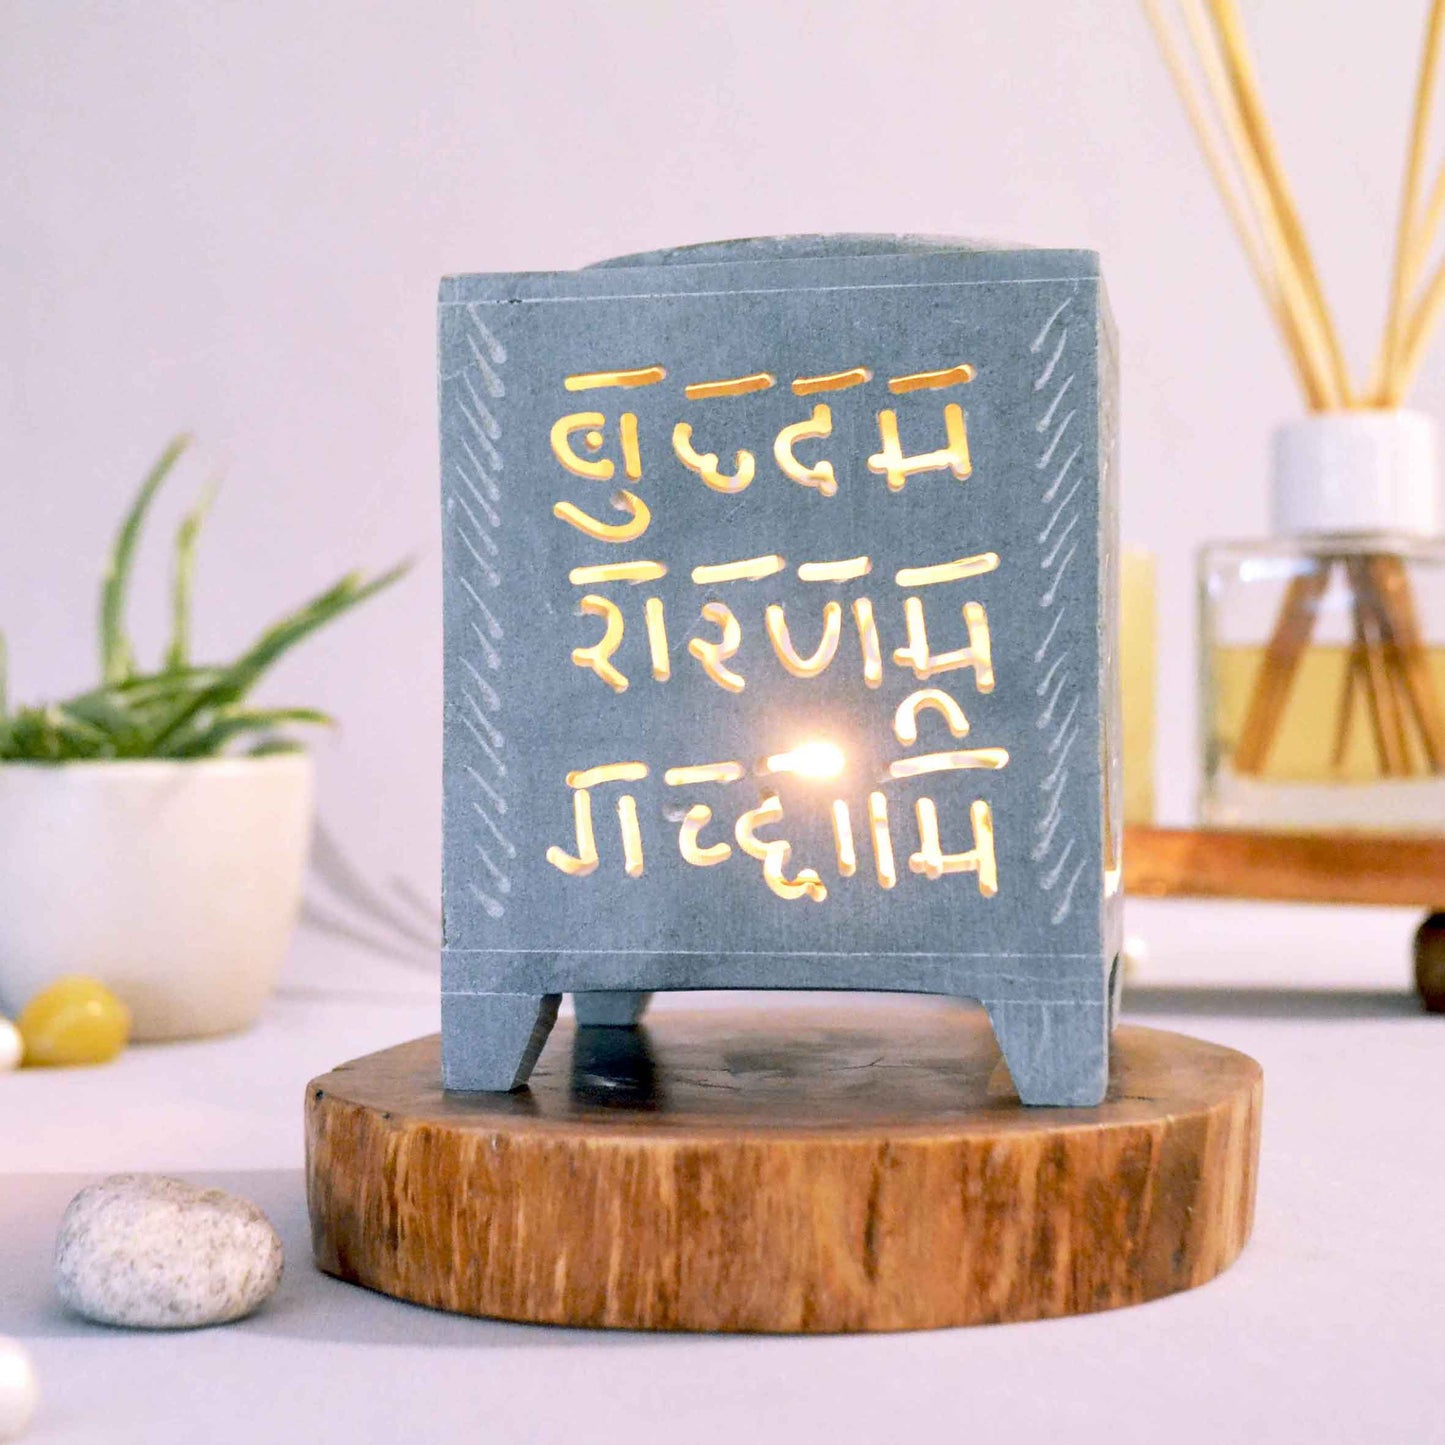 बुददम
शरणम
गच्छामि